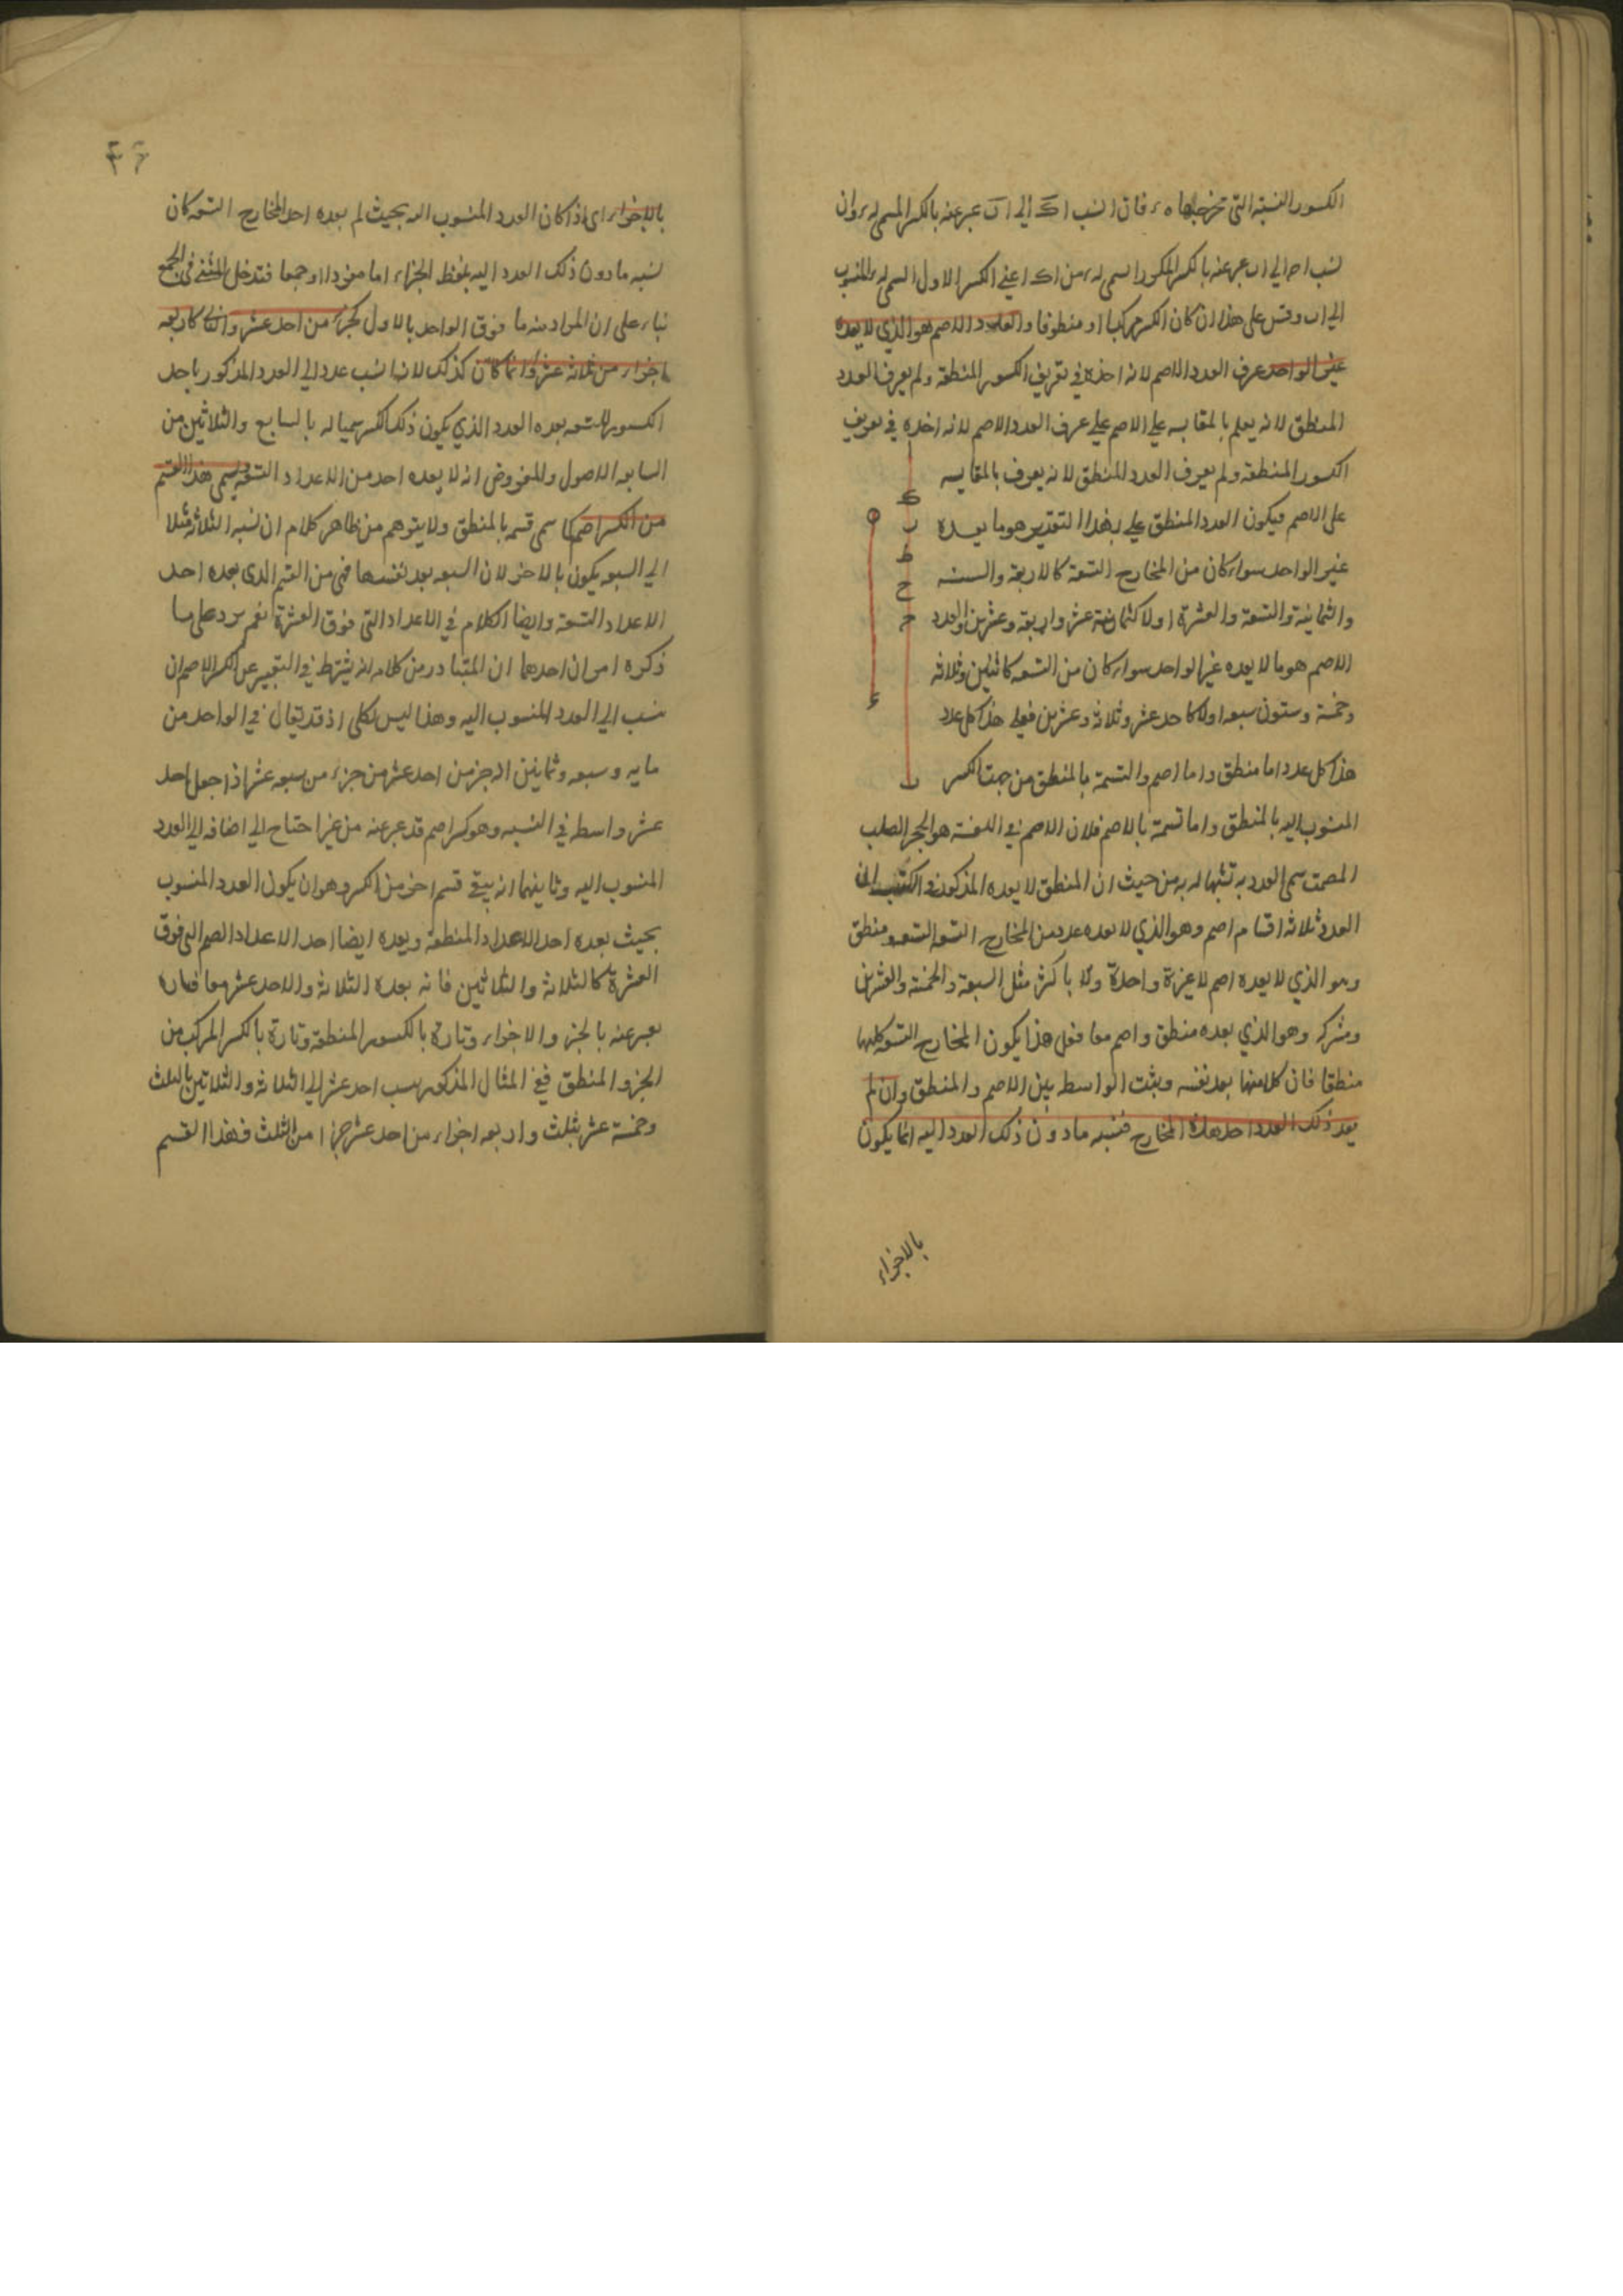 الكسور النسبة التى مخرجها ه ر فان انسب ا ک الى ا ب عبر عنه بالكسر المسمى له ر وان
نسب ا ح الى ا ب عبر عنه بالكسر المذكور السمى له ر من ا ک اعنى الكسر الاول السمى له ر المنسوب
الى ا ب وقس على هذا ان كان الكسر مركبا او منطوقا والعدد الاصم هو الذي لا يعده
غير الواحد عرف العدد الاصم لانه اخذه في تعريف الكسور المنطقة ولم يعرف العدد
المنطق لانه يعلم بالمقايسه على الاصم على عرف العدد الاصم لانه اخذه في تعريف
الكسور المنطقة ولم يعرف العدد المنطق لانه يعرف بالمقايسه
على الاصم فيكون العدد المنطق على هذا التقدير هو ما يعده
غير الواحد سواء كان من المخارج التسعة كالاربعة والستة
والثمانية والتسعة والعشرة اولا كثمانية عشر واربعة وعشرين والعدد
الاصم هو ما لا يعده غير الواحد سواء كان من التسعه كاثنين وثلاثه
وخمسة وسبعه اولا كاحد عشر وثلاثة وعشرين فعلى هذا كل عدد
هذا كل عدد اما منطق واما اصم والتسمية بالمنطق من جهة الكسر
المنسوب اليه بالمنطق واما تسمية بالاصم فلان الاصم في اللغة هو الحجر الصلب
المصمت سمى العدد به تشبها له به من حيث ان المنطق لا يعده المذكور
العدد ثلاثة اقسام اصم وهو الذي لا يعده عدد من المخارج التسعه ومنطق
وهو الذي لا يعده اصم لا مرة واحدة ولا باكثر مثل السبعة والخمسة والعشرين
ومشترك وهو الذي يعده منطق واصم معا فعلى هذا يكون المخارج التسعه كلها
منطقا فان كلا منها يعد نفسه ويثبت الواسطه بين الاصم والمنطق وان لم
يعد ذلك العدد احد هذه المخارج فنسبه ما دون ذلك العدد اليه انما يكون
بالاجزاء
ک
ه
ر
ط
ح
ب
٤٦
بالاجزاء اى اذا كان العدد المنسوب اليه بحيث لم يعده احد المخارج التسعه كان
نسبه ما دون ذلك العدد اليه بلفظ الجزء اما مفردا او جمعا فتدخل المثنى في الجمع
بناء على ان المراد منه ما فوق الواحد بالاول كجزء من احد عشر والثاني كاربعه
اجزاء من ثلاثة عشر وانما كان كذلك لانه انسب عدد الى العدد المذكور باحد
الكسور التسعه يعده العدد الذي يكون ذلك الكسر سميا له بالسابع والثلاثين من
السابعه الاصول والمفروض انه لا يعده احد من الاعداد التسعة ويسمى هذا القسم
من الكسر اصم كما سمى قسمه بالمنطق ولا يتوهم من ظاهر كلامه ان نسبه الثلاثة مثلا
الى السبعه يكون بالاجزاء لان السبعه يعد نفسها فهى من القسم الذى يعده احد
الاعداد التسعة وايضا الكلام في الاعداد التى فوق العشرة نعم يرد على ما
ذكره امران احدهما ان المتبادر من كلامه انه يشترط في التعبير عن الكسر الاصم ان
ينسب الى العدد المنسوب اليه وهذا ليس بكلى اذ قد يقال في الواحد من
مايه وسبعه وثمانين انه جزء من احد عشر من جزء من سبعه عشر اذا جعل احد
عشر واسطه في النسبه وهو كسر اصم قد عبر عنه من غير احتياج الى اضافه الى العدد
المنسوب اليه وثانيهما انه يبقى قسم اخر من الكسر وهو ان يكون العدد المنسوب
بحيث يعده احد الاعداد المنطقة ويعده ايضا احد الاعداد الصم التى فوق
العشرة كالثلاثة والثلاثين فانه يعده الثلاثة والاحد عشر معا فتارة
يعبر عنه بالجزء والاجزاء وتارة بالكسور المنطقة وتارة بالكسر المركب من
الجزء والمنطق ففي المثال المذكور ينسب احد عشر الى الثلاثة والثلاثين بالثلث
وخمسة عشر بثلث واربعه اجزاء من احد عشر جزءا من الثلث فهذا القسم